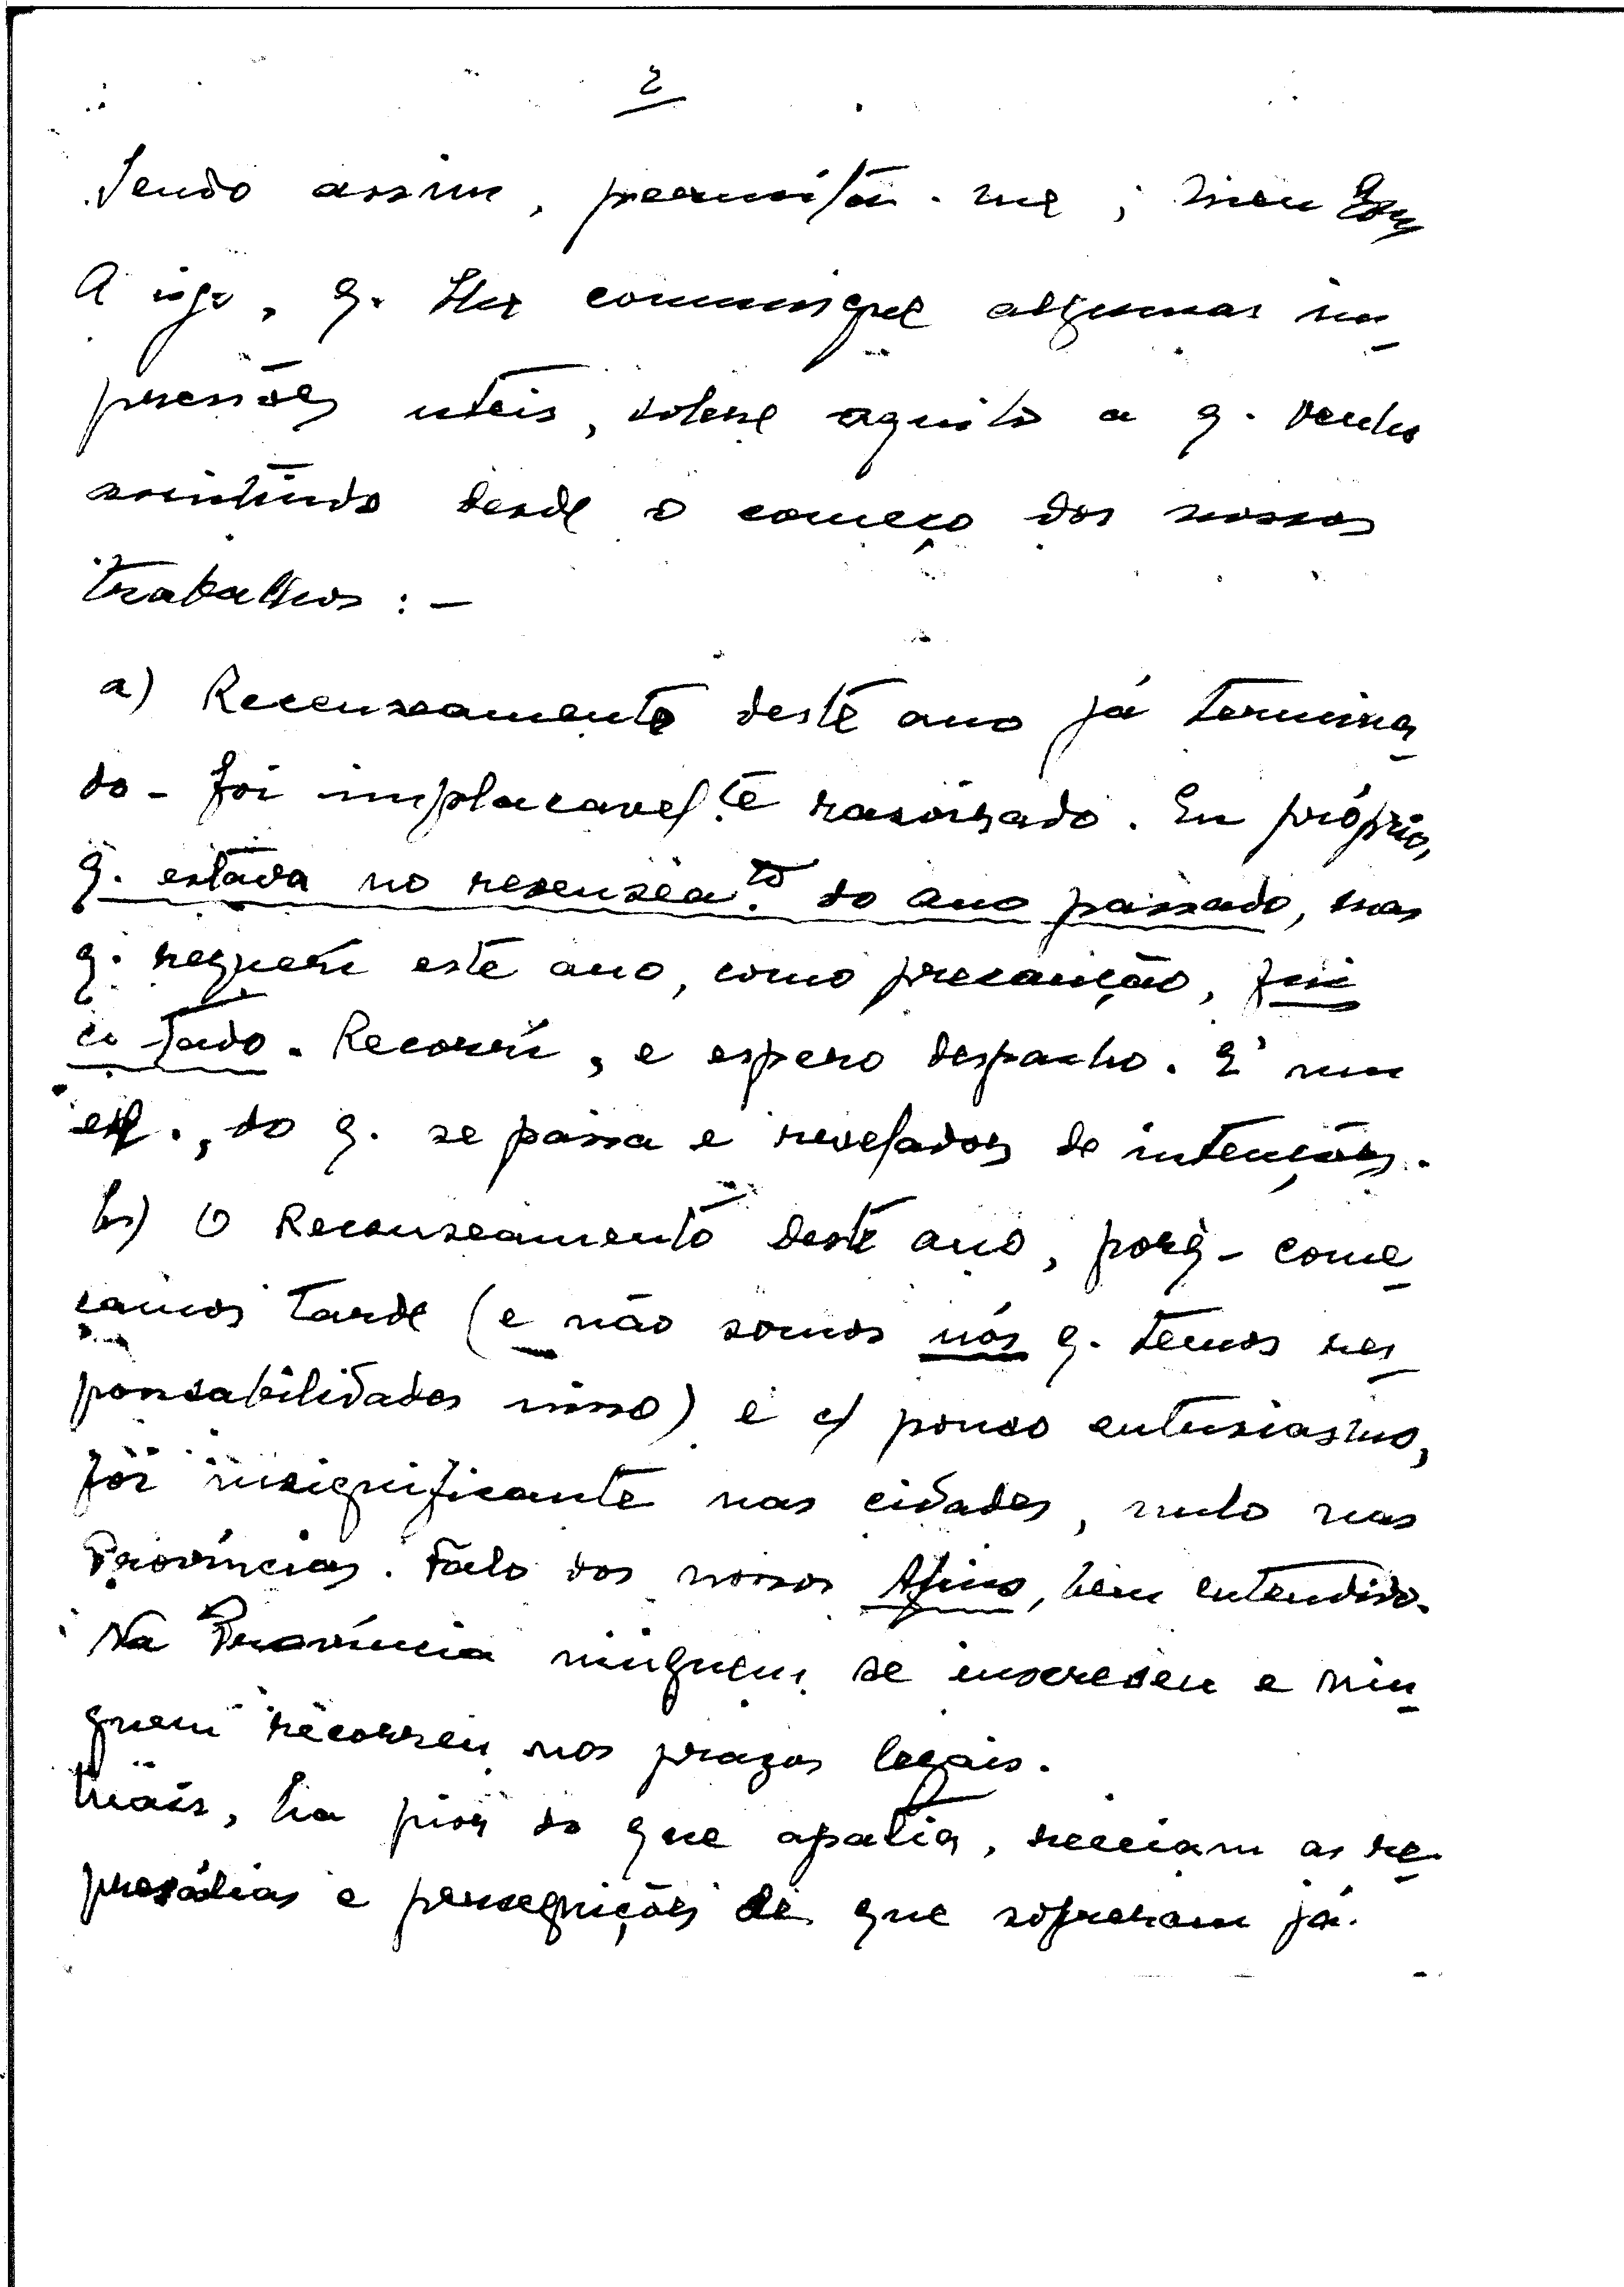 2
Sendo assim, permita-me, meu Exmº
Amigo, q. lhe communique algumas im
pressões uteis, sobre aquilo a q. venho
assistindo desde o começo dos nossos
trabalhos : -
a) Recenseamento deste ano já termina
do - foi implacavel.te rasoirado. Eu próprio,
q. estava no recensea.to do ano passado, mas
q. requeri este ano, como precaução, fui
cortado. Recorri, e espero despacho. E' um
ex., do q. se passa e revelador de intenções.
b) O Recenseamento deste ano, porq- come
çamos tarde (e não somos nós q. temos res
ponsabilidades nisso) e c/ pouco entusiasmo,
foi insignificante nas cidades, nulo nas
Províncias. Falo dos nossos Afins, bem entendido.
Na Província ninguem se inscreveu e nin
guem recorreu nos prazos legais.
Mais, ha pior do que apatia, receiam as re
presálias e perseguições de que sofreram já.